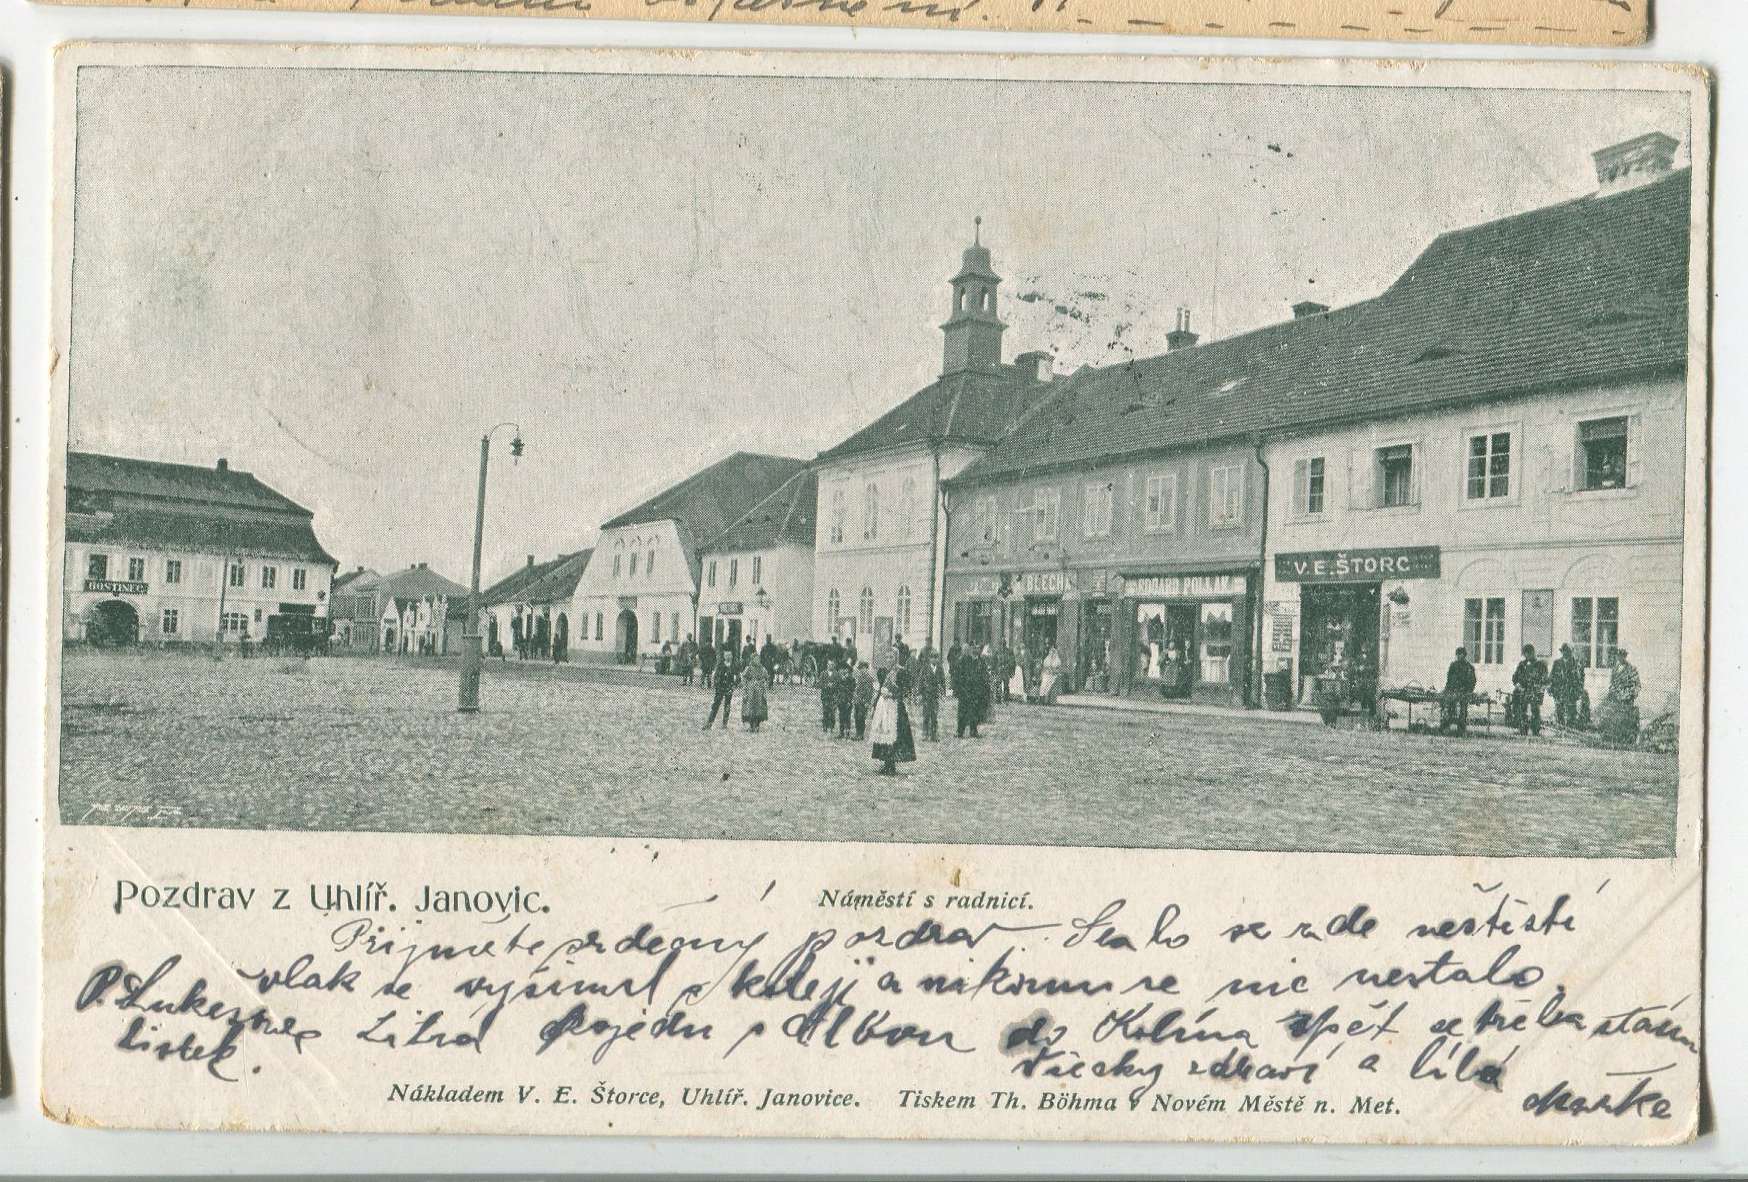 HOSTINEC
BLECHA
POLLAK
V. E. ŠTORC
Pozdrav z Uhlíř. Janovic.
Náměstí s radnicí.
Přijměte srdečný pozdrav. Stalo se zde neštěstí
vlak se vyšinul s koleji a nikomu se nic nestalo.
pojedu s do Kolína zpět se třeba
lístek.
Všecky zdraví a líbá
Nákladem V. E. Štorce, Uhlíř. Janovice. Tiskem Th. Böhma v Novém Městě n. Met.